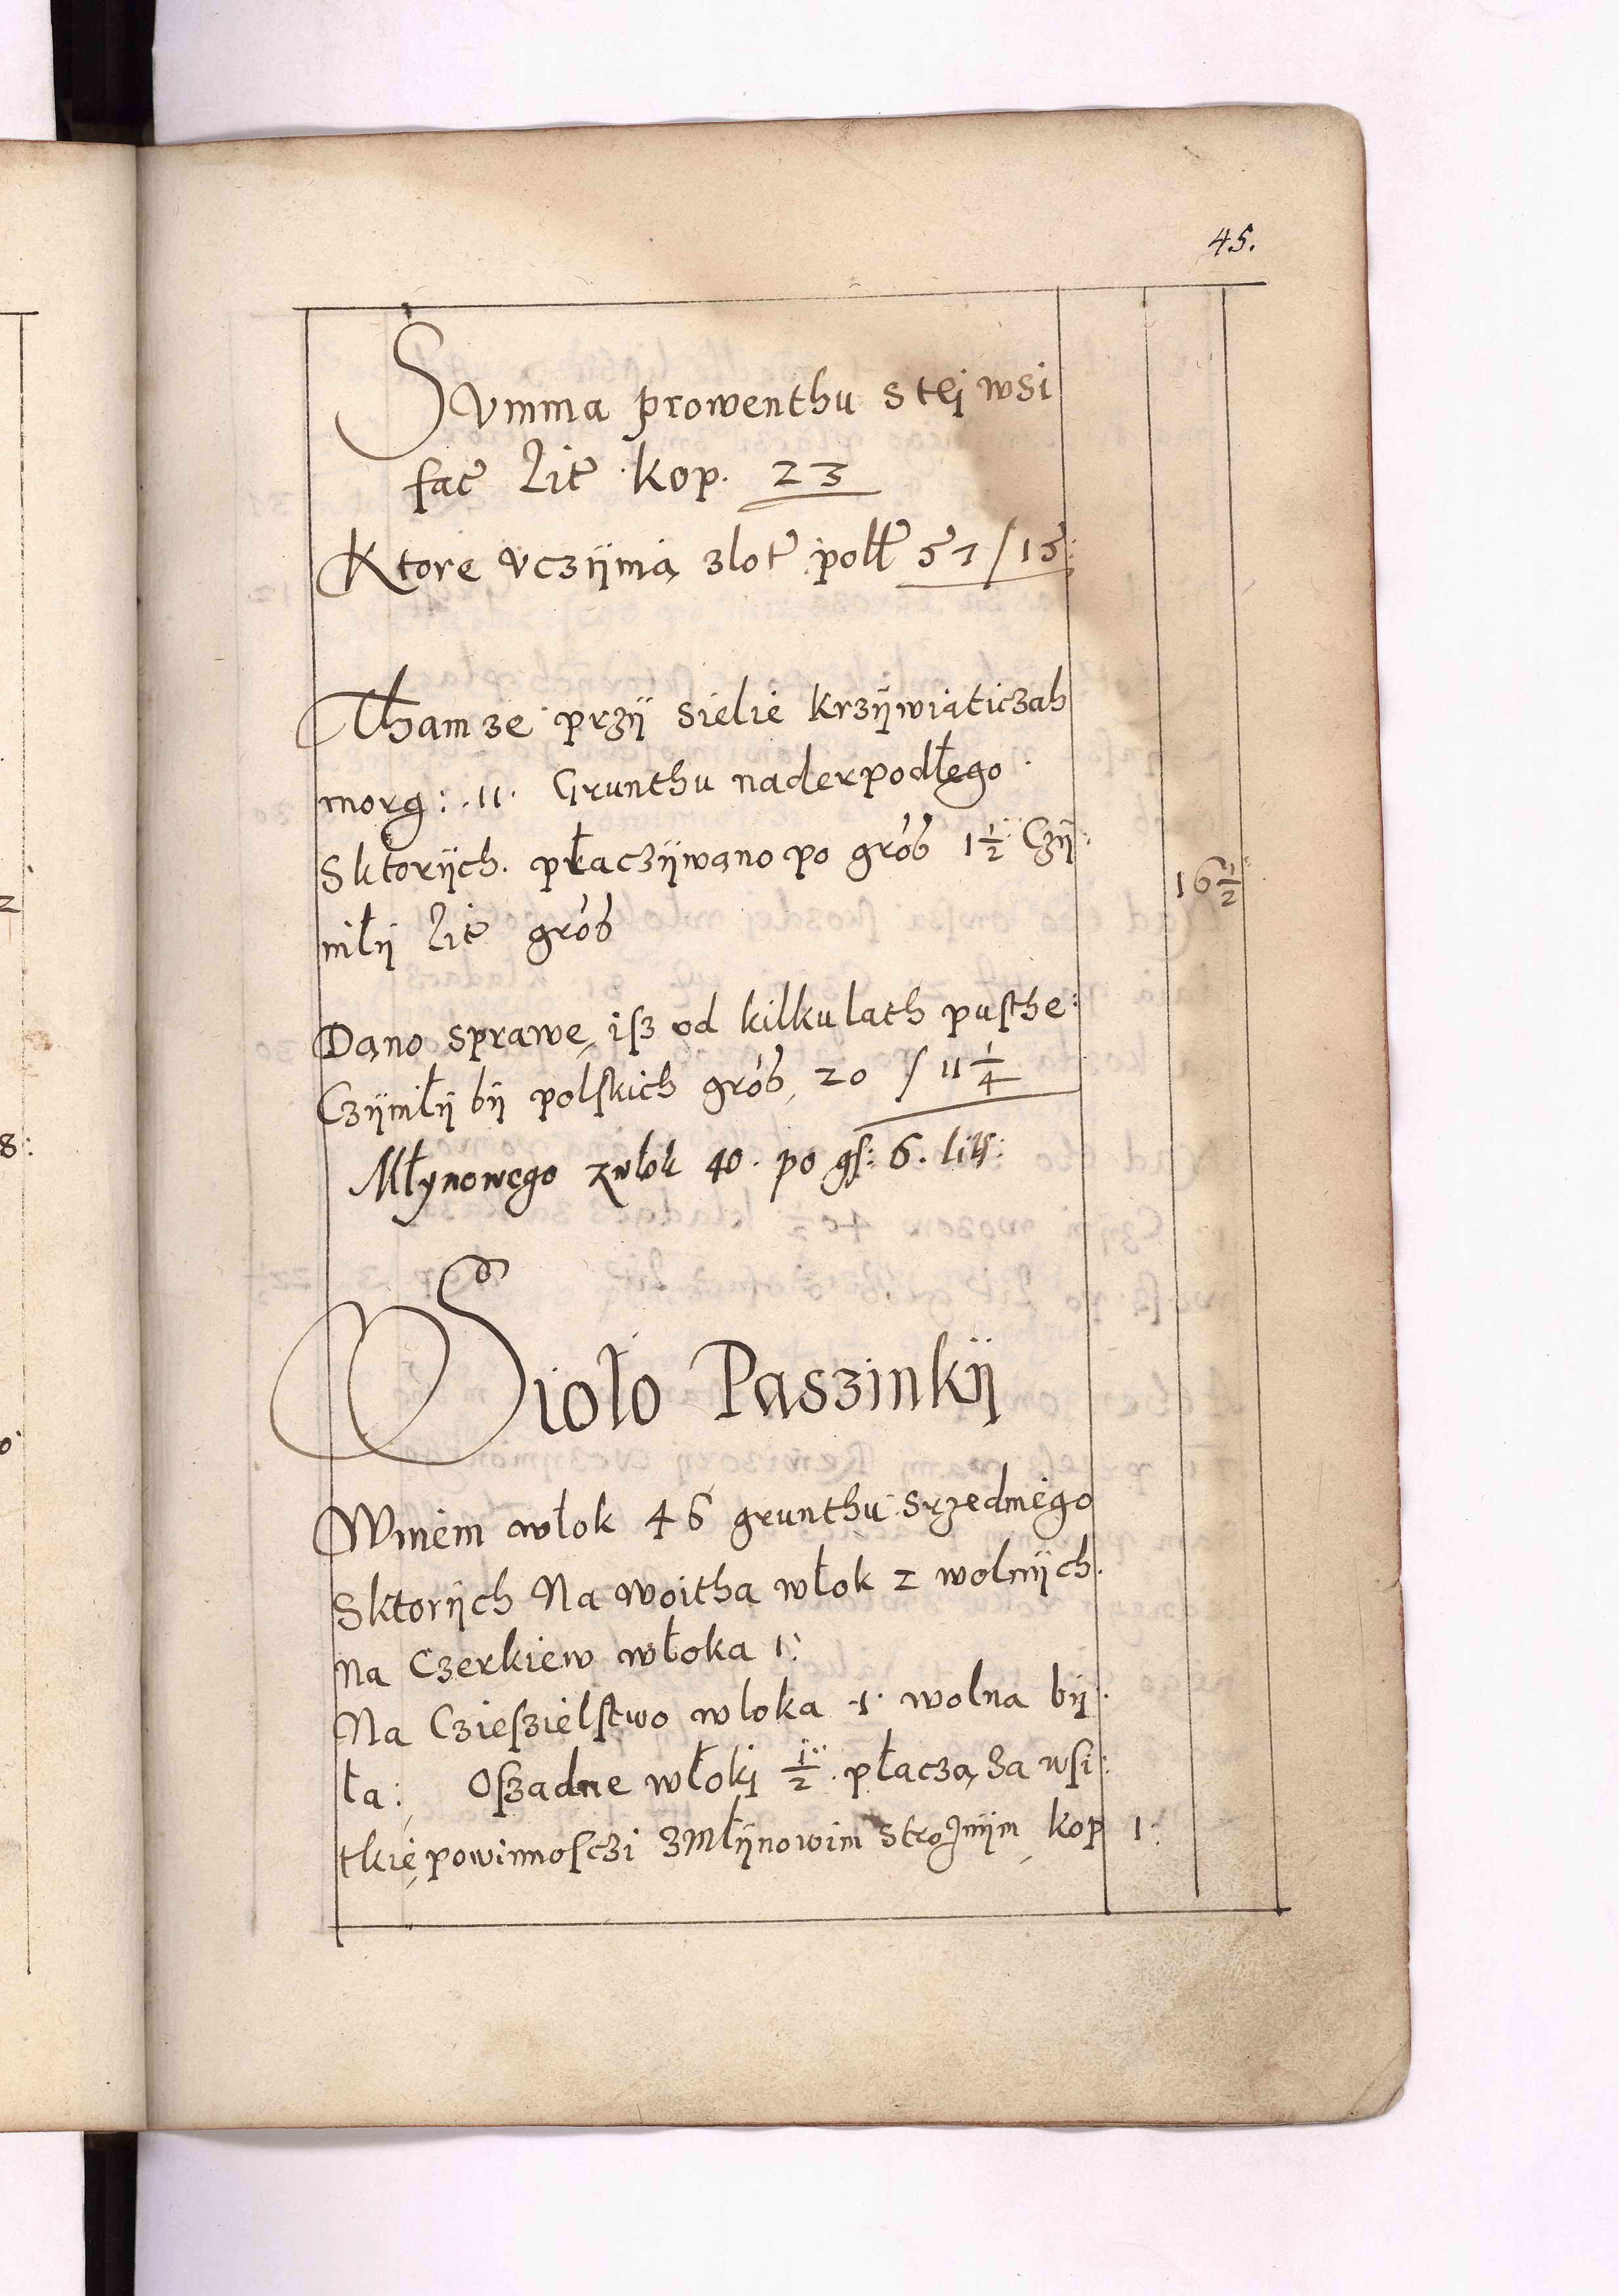 45.
Summa prowenthu stej wsi
fac̃ lit̃ kop. 23
Ktore vczÿnią zlot̃ poll̃ 57/15:
Tham ze przÿ sielie krzÿwiąticzah
morg: .11. Grunthu naderpodłego.
Sktorÿch. płaczÿwano po grob 1½ Czÿ: 16½
niłÿ lit̃ grob
Dano sprawę, isz od kilku lath pusthe:
Czÿniłÿ bÿ polskich grob, 20 / 11¼
Młynowego zwłok 40. po gs: 6. litt:
Sioło Paszinkÿ
Wniem włok 46 grunthu srzedniego
Sktorÿch Na woitha włok 2 wolnÿch.
Na Czerkiew włoka 1:
Na Czieszielstwo wloka 1. wolna bÿ:
ła: Oszadne włokj ½ płaczą Za wsi:
tkie powinnosczi zMłÿnowim strojnÿm kop 1: